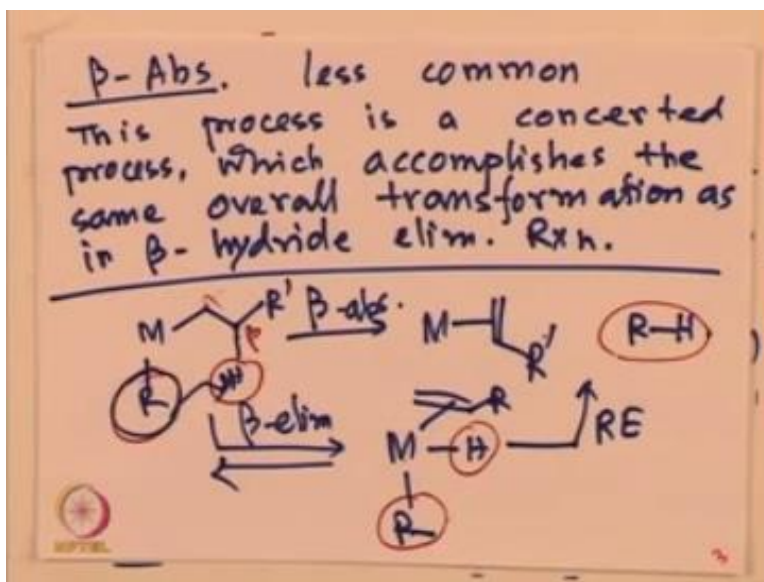 β-Abs. less common
This process is a concerted
process, which accomplishes the
same overall transformation as
in β-hydride elim. Rxn.
M R' β-abs. M R' R-H
β
R H
β-elim R
M-H RE
R
NPTEL
3